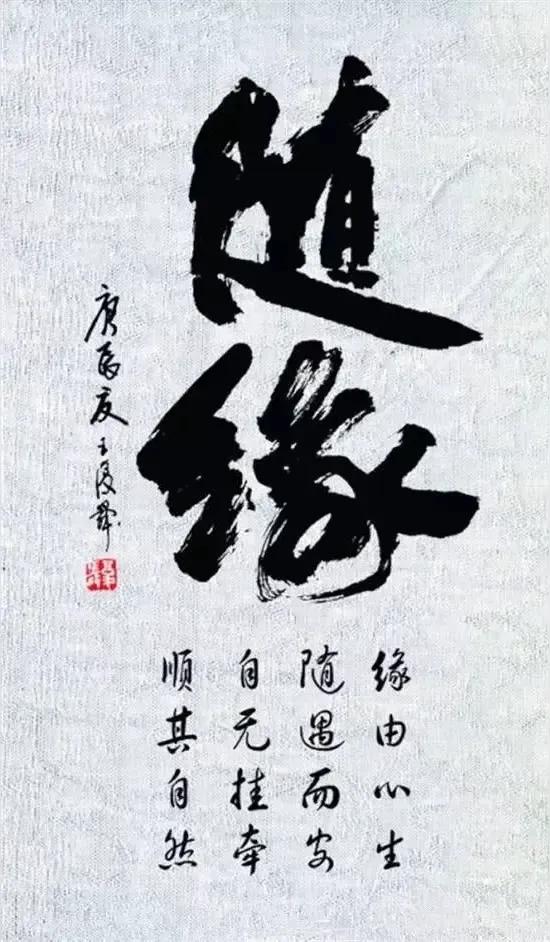 随
缘
缘由心生
随遇而安
自无挂牵
顺其自然
庚辰夏